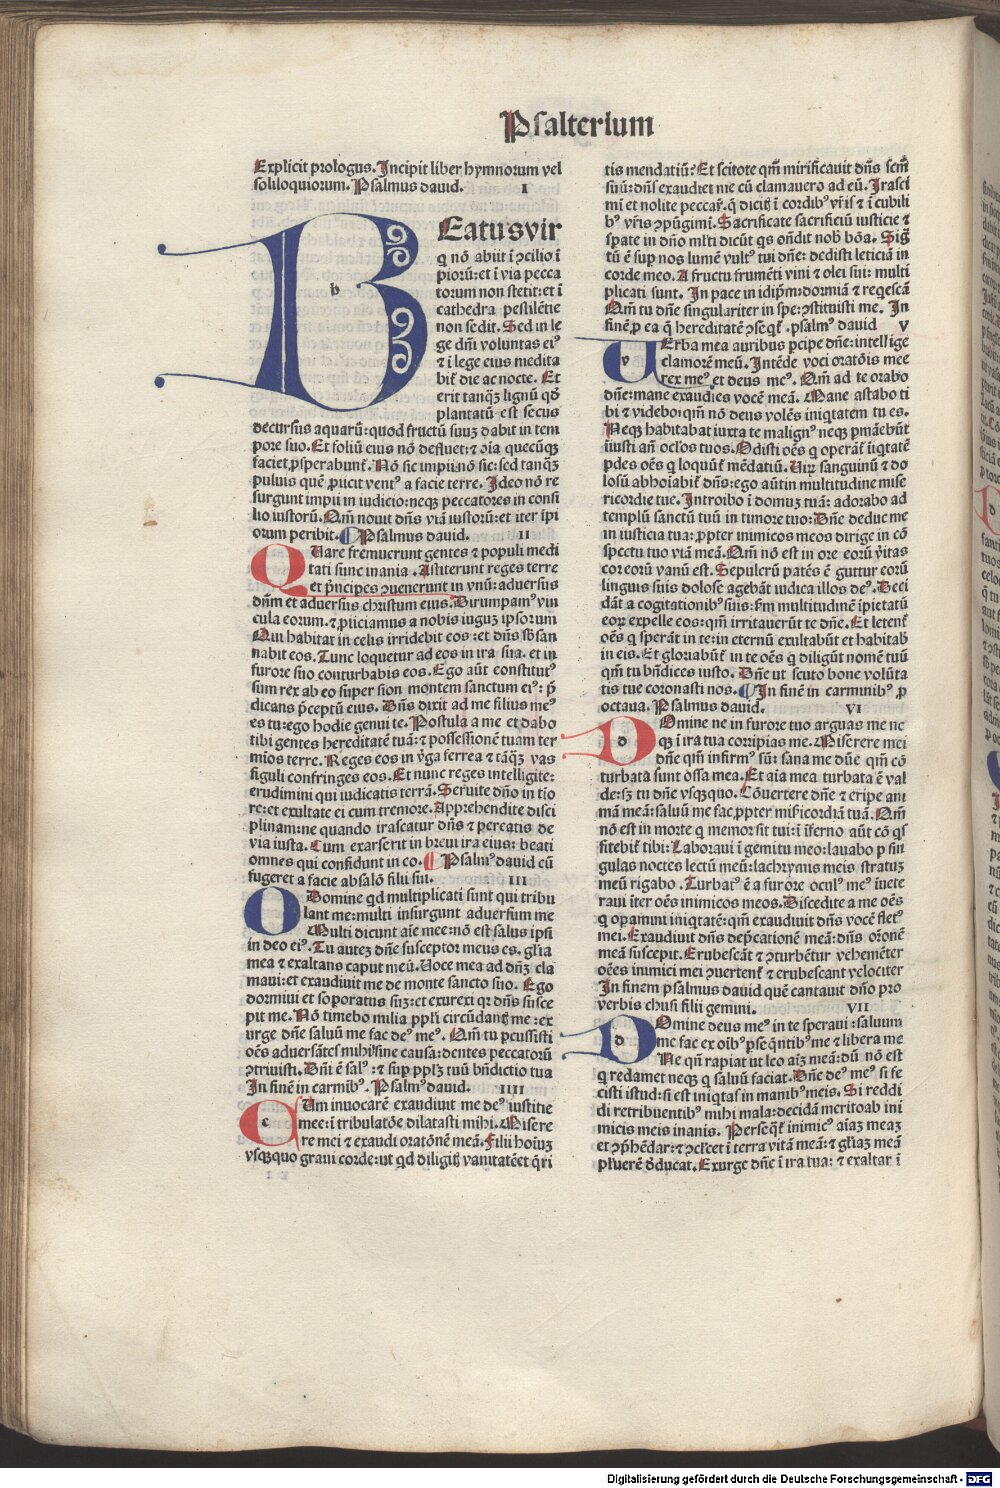 Psalterium
Explicit prologus. Incipit liber hymnorum vel
soliloquiorum. Psalmus dauid. I
b
Eatus vir
q nō abiit ī ꝯcilio ī
pioꝝ: et ī via pecca
torum non stetit: et ī
cathedra pestilētie
non sedit. Sed in le
ge dn̄i voluntas eiꝰ
⁊ ī lege eius medita
bit̄ die ac nocte. Et
erit tanqꝫ lignū qd̄
plantatū est secus
decursus aquarū: quod fructū suuꝫ dabit in tem
pore suo. Et foliū eius nō defluet: ⁊ oīa quecūqꝫ
faciet ꝓsperabunt̄. Nō sic impii: nō sic: sed tanqꝫ
puluis quē ꝓiicit ventꝰ a facie terre. Ideo nō re
surgunt impii in iudicio: neqꝫ peccatores in consi
lio iustorū. Qm̄ nouit dn̄s viā iustorū: et iter ipi
orum peribit. Psalmus dauid. II
Q
Uare fremuerunt gentes ⁊ populi medi
tati sunt inania. Astiterunt reges terre
et pn̄cipes ꝯuenerunt in vnū: aduersus
dn̄m et aduersus christum eius. Dirumpamꝰ vin
cula eorum. ⁊ ꝓiiciamus a nobis iuguꝫ ipsorum
Qui habitat in celis irridebit eos: et dn̄s sb̄san
nabit eos. Tunc loquetur ad eos in ira sua. et in
furore suo conturbabis eos. Ego aūt constitutꝰ
sum rex ab eo super sion montem sanctum eiꝰ: p̄
dicans p̄ceptū eius. Dn̄s dixit ad me filius meꝰ
es tu: ego hodie genui te. Postula a me et dabo
tibi gentes hereditatē tuā: ⁊ possessionē tuam ter
mios terre. Reges eos in v̄ga ferrea ⁊ tāqꝫ vas
figuli confringes eos. Et nunc reges intelligite:
erudimini qui iudicatis terrā. Seruite dn̄o in tīo
re: et exultate ei cum tremore. Apprehendite disci
plinam: ne quando irascatur dn̄s ⁊ pereatis de
via iusta. Cum exarserit in breui ira eius: beati
omnes qui confidunt in eo. Psalmꝰ dauid cū
fugeret a facie absalō filii sui. III
D
Domine qd multiplicati sunt qui tribu
lant me: multi insurgunt aduersum me
Multi dicunt aīe mee: nō est salus ipsi
in deo eiꝰ. Tu auteꝫ dn̄e susceptor meus es. gl̄ia
mea ⁊ exaltans caput meū. Uoce mea ad dn̄ꝫ cla
maui: et exaudiuit me de monte sancto suo. Ego
dormiui et soporatus suꝫ: et exurexi qꝛ dn̄s susce
pit me. Nō timebo milia ppl̄i circūdantꝫ me: ex
urge dn̄e saluū me fac deꝰ meꝰ. Qm̄ tu pcussisti
oēs aduersātes mihi sine causa: dentes peccatorū
ꝯtriuisti. Dn̄i ē salꝰ: ⁊ sup ppl̄ꝫ tuū bn̄dictio tua
In finē in carmibꝰ. Psalmꝰ dauid. IIII
c
Um inuocarē exaudiuit me deꝰ iustitie
mee: ī tribulatōe dilatasti mihi. Misere
re mei ⁊ exaudi oratōnē meā. Filii hoīuꝫ
vsqꝫquo graui corde: ut qd diligitꝫ vanitatē et q̄ri
tis mendatiū: Et scitote qm̄ mirificauit dn̄s scm̄
suū: dn̄s exaudiet me cū clamauero ad eū. Irasci
mī et nolite peccaꝝ. q̄ dicitꝫ ī cordibꝰ vr̄is ⁊ ī cubili
bꝰ vr̄is ꝯpūgimī. Sacrificate sacrificiū iusticie ⁊
spate in dn̄o ml̄ti dicūt qs on̄dit nob̄ bōa. Sig̃
tū ē sup nos lumē vultꝰ tui dn̄e: dedisti leticiā in
corde meo. A fructu frumēti vini ⁊ olei sui: multi
plicati sunt. In pace in idip̄m: dormiā ⁊ reqescā
Qm̄ tu dn̄e singulariter in spe: ꝯstituisti me. In
finē ꝓ ea q̄ hereditatē ꝯseqt̄. psalmꝰ dauid V
v
Erba mea auribus pcipe dn̄e: intellige
clamorē meū. Intēde voci oratōis mee
rex meꝰ et deus meꝰ. Qm̄ ad te orabo
dn̄e: mane exaudies vocē meā. Mane astabo ti
bi ⁊ videbo: qm̄ nō deus volēs iniqtatem tu es.
Neqꝫ habitabat iuxta te malignꝰ neqꝫ pmāebūt
iiusti an̄ ocl̄os tuos. Odisti oēs q operāt̄ iiqtatē
pdes oēs q loquūt̄ mēdatiū. Uiꝝ sanguinū ⁊ do
losū abhoīabit̄ dn̄s: ego aūtin multitudine mise
ricordie tue. Introibo ī domuꝫ tuā: adorabo ad
templū sanctū tuū in timore tuo: Dn̄e deduc me
in iusticia tua: ꝓpter inimicos meos dirige in cō
spectu tuo viā meā. Qm̄ nō est in ore eorū v̄itas
cor eorū vanū est. Sepulcrū patēs ē guttur eorū
linguis suis dolose agebāt iudica illos deꝰ. Deci
dāt a cogitationibꝰ suis: s̄m multitudinē īpietatū
eoꝝ expelle eos: qm̄ irritauerūt te dn̄e. Et letent̄
oēs q sperāt in te: in eternū exultabūt et habitab̄
in eis. Et gloriabūt̄ in te oēs q diligūt nomē tuū
qm̄ tu bn̄dices iusto. Dn̄e ut scuto bone volūta
tis tue coronasti nos. In finē in carminibꝰ ꝓ
octaua. Psalmus dauid. VI
D
Omine ne in furore tuo arguas me ne
qꝫ ī ira tua corripias me. Miserere mei
dn̄e qm̄ infirmꝰ sū: sana me dn̄e qm̄ cō
turbata sunt ossa mea. Et aīa mea turbata ē val
de: sꝫ tu dn̄e vsqꝫquo. Cōuertere dn̄e ⁊ eripe ani
mā meā: saluū me fac ꝓpter mīsicordiā tuā. Qm̄
nō est in morte q memor sit tui: ī īferno aūt cō qs
fitebit̄ tibi: Laboraui ī gemitu meo: lauabo p sin
gulas noctes lectū meū: lachrymis meis stratuꝫ
meū rigabo. Turbatꝰ ē a furore oculꝰ meꝰ īuete
raui īter oēs inimicos meos. Discedite a me oēs
q opamini iniqtatē: qm̄ exaudiuit dn̄s vocē fletꝰ
mei. Exaudiuit dn̄s dep̄cationē meā: dn̄s oꝛonē
meā suscepit. Erubescāt ⁊ ꝯturbētur vehemēter
oēes inimici mei ꝯuertent̄ ⁊ erubescant velociter
In finem psalmus dauid quē cantauit dn̄o pro
verbis chusi filii gemini. VII
D
Omine deus meꝰ in te speraui: saluum
me fac ex oībꝰ pseq̄ntibꝰ me ⁊ libera me
Ne qn̄ rapiat ut leo aīaꝫ meā: dū nō est
q redamet neqꝫ q saluū faciat. Dn̄e deꝰ meꝰ si fe
cisti istud: si est iniqtas in manibꝰ meis. Si reddi
di retribuentibꝰ mihi mala: decidā merito ab ini
micis meis inanis. Perseqt̄ inimicꝰ aīaꝫ meaꝫ
et ꝯp̄hēdat: ⁊ ꝯcl̄cet ī terra vitā meā: ⁊ gl̄iaꝫ meā
pl̄uerē ddūcat. Exurge dn̄e ī ira tua: ⁊ exaltar ī
Digitalisierung gefördert durch die Deutsche Forschungsgemeinschaft - DFG